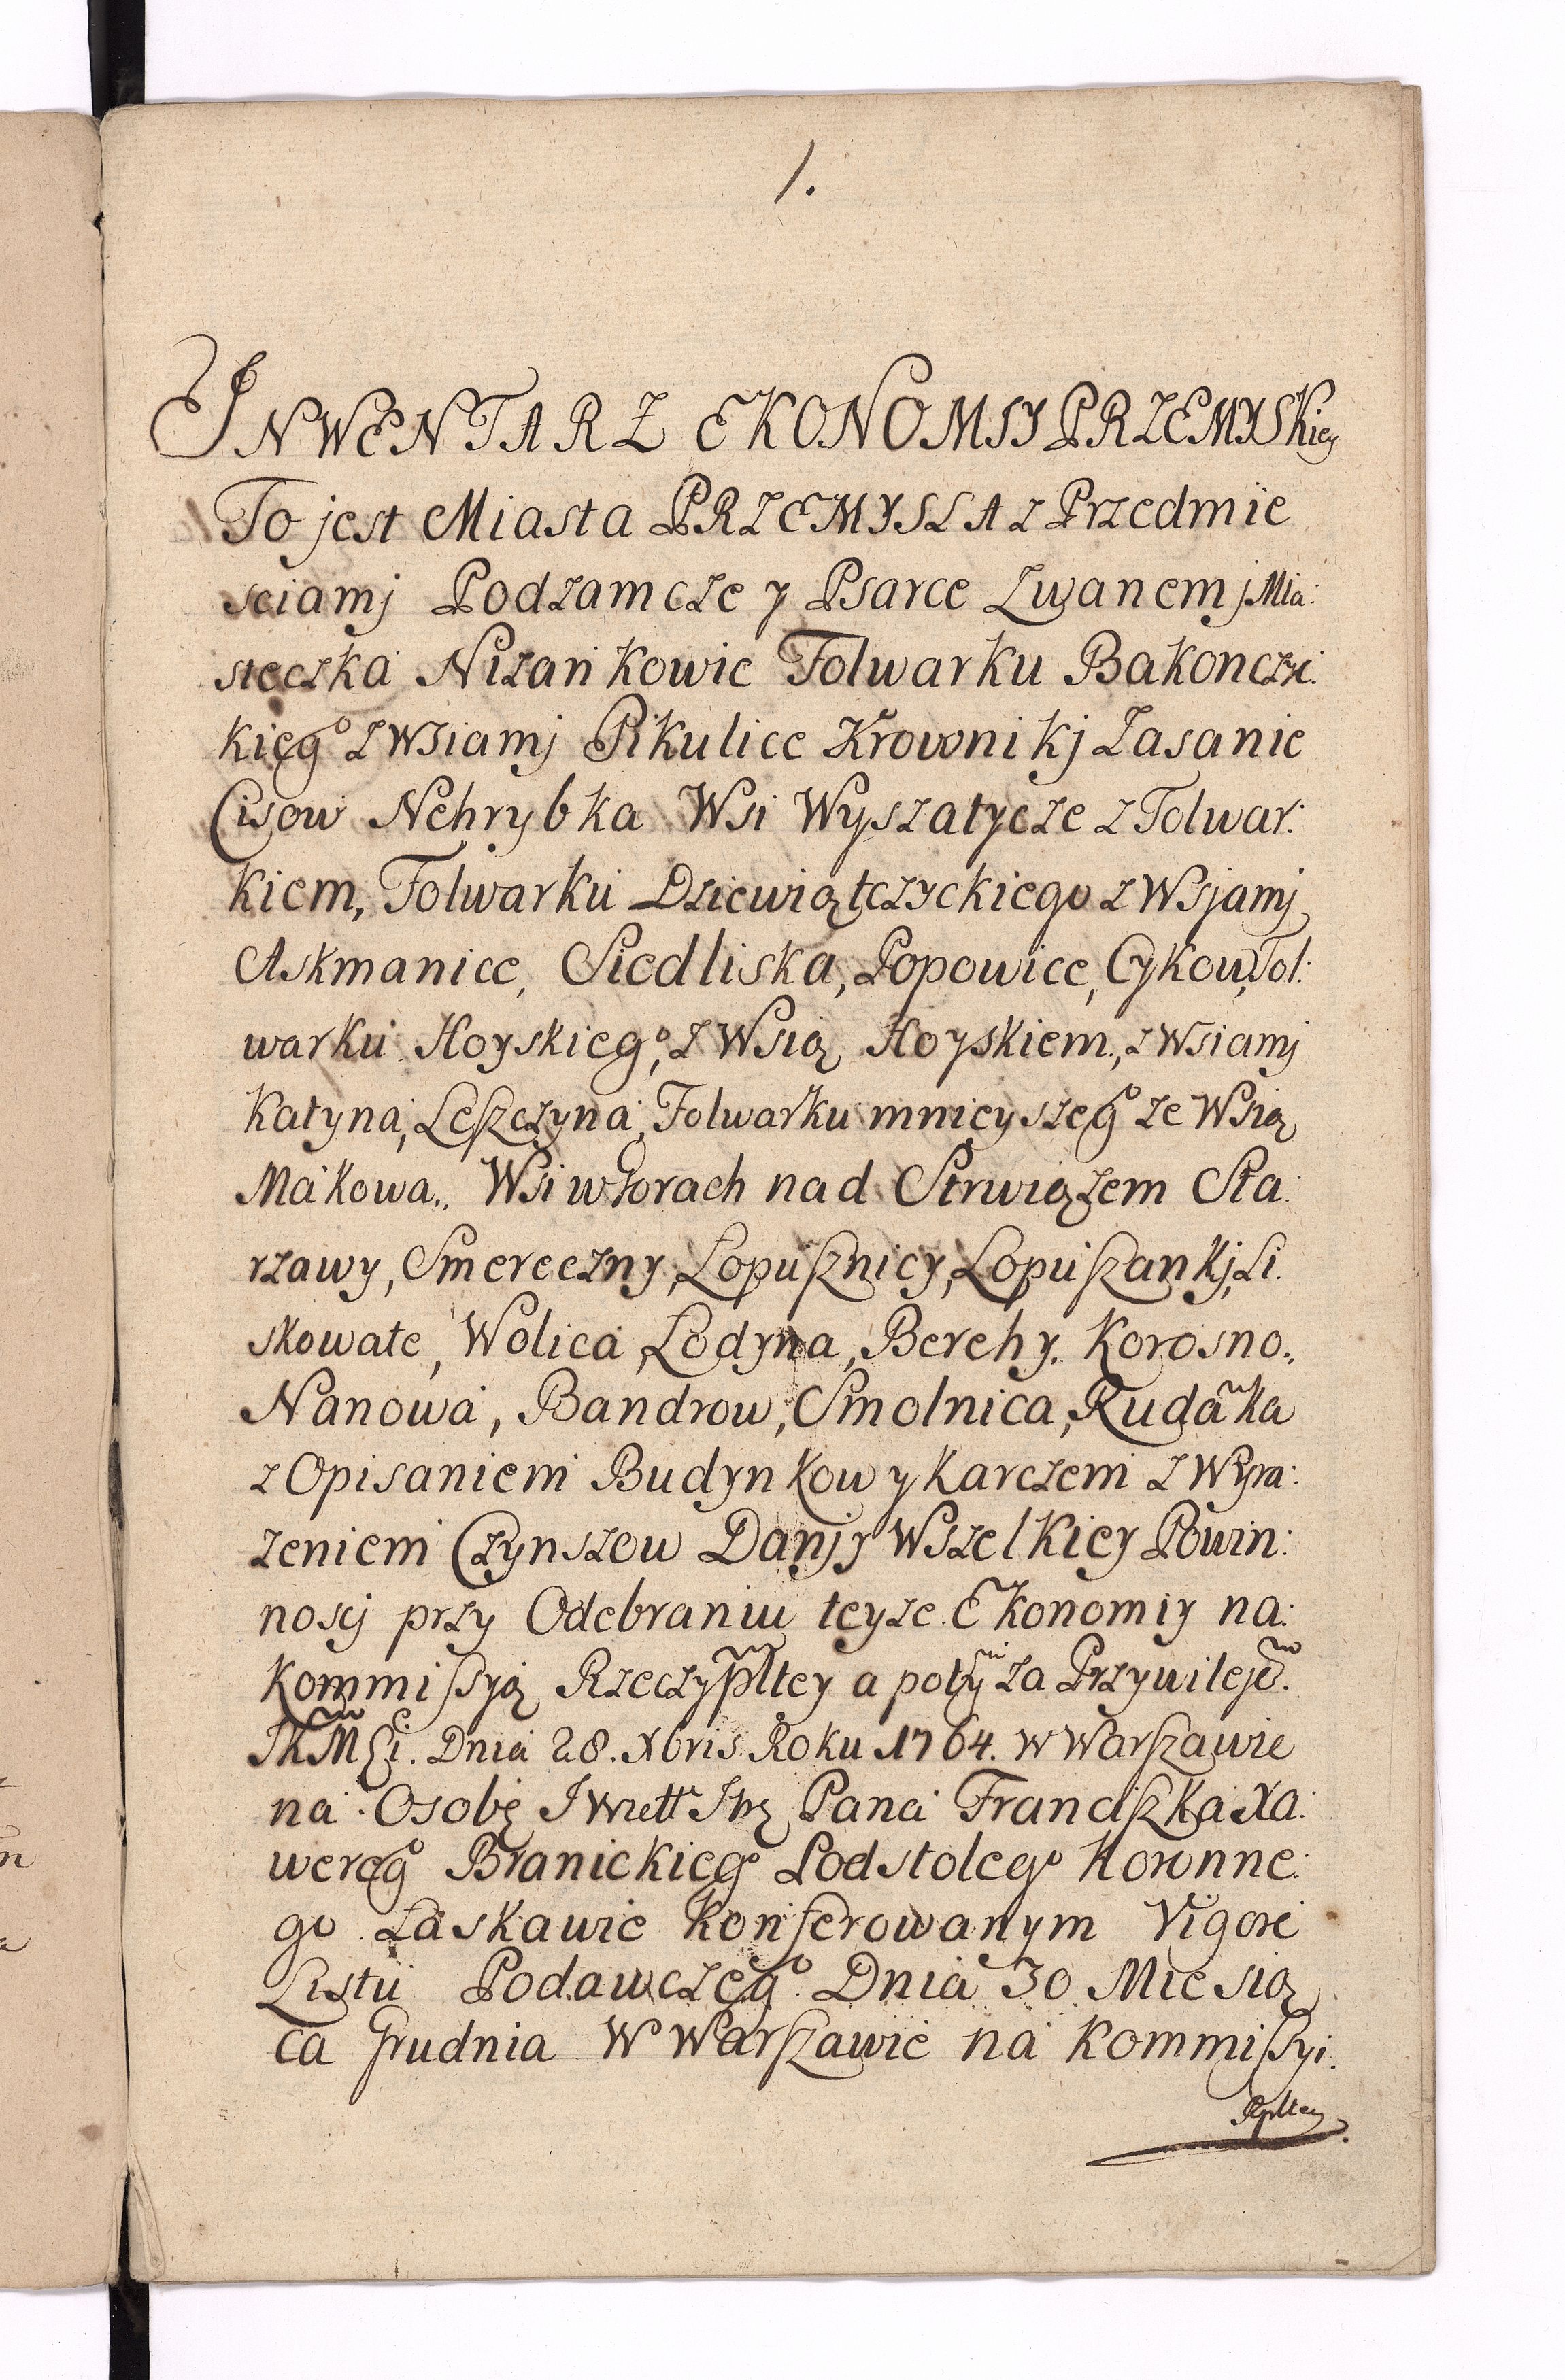 1.
INWENTARZ EKONOMIJ PRZEMYSKiey
To jest Miasta PRZEMYSLA z Przedmie
sciamj Podzamcze y Psarce Zwanemj Mia:
steczka Nizankowic Folwarku Bakonczic:
kieg° z wsiamj Pikulice Krownikj Zasanie
Cisow Nehrybka Wsi Wyszatycze z Folwar:
kiem, Folwarku Dziewiątczyckiego z Wsjamj
Askmanice, Siedliska, Popowice, Cykow, Fol:
warku Hoyskieg°, z Wsią Hoyskiem, z Wsiamj
Katyna, Leszczyna, Folwarku mnieyszeg° ze Wsią
Makowa, Wsi w Gorach nad Strwiązem Sta:
rzawy, Smereczny, Lopusznicy, Lopuszankj, Li:
skowate, Wolica, Lodyna, Berehy, Korosno,
Nanowa, Bandrow, Smolnica, Rudãka
z Opisaniem Budynkow y Karczem z Wyra:
zeniem Czynszow Danjy Wszelkiey Powin:
noscj przy Odebraniu teyze Ekonomiy na:
Kommissyą Rzeczypltey a potỹ za Przywilejẽ.
JKMCi. Dnia 28. Xbris Roku 1764. w Warszawie
na Osobę J Pana Franciszka Xa:
wereg° Branickieg° Podstoleg° Koronne:
go Łaskawie Konferowanym Vigore
Listu Podawczeg° Dnia 30 Miesią
ca Grudnia W Warszawie na Kommissyi.
Rpltey